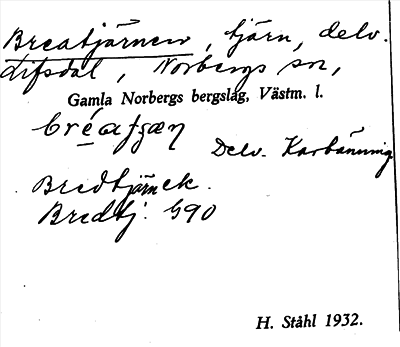 Breatjärnen, tjärn, delv.
Lifsdal, Norbergs sn,
Gamla Norbergs bergslag, Västm. l.
bré̱afgæn
Delv. Karbänning
Bredtjärnek.
Bredtj: G90
H. Ståhl 1932.